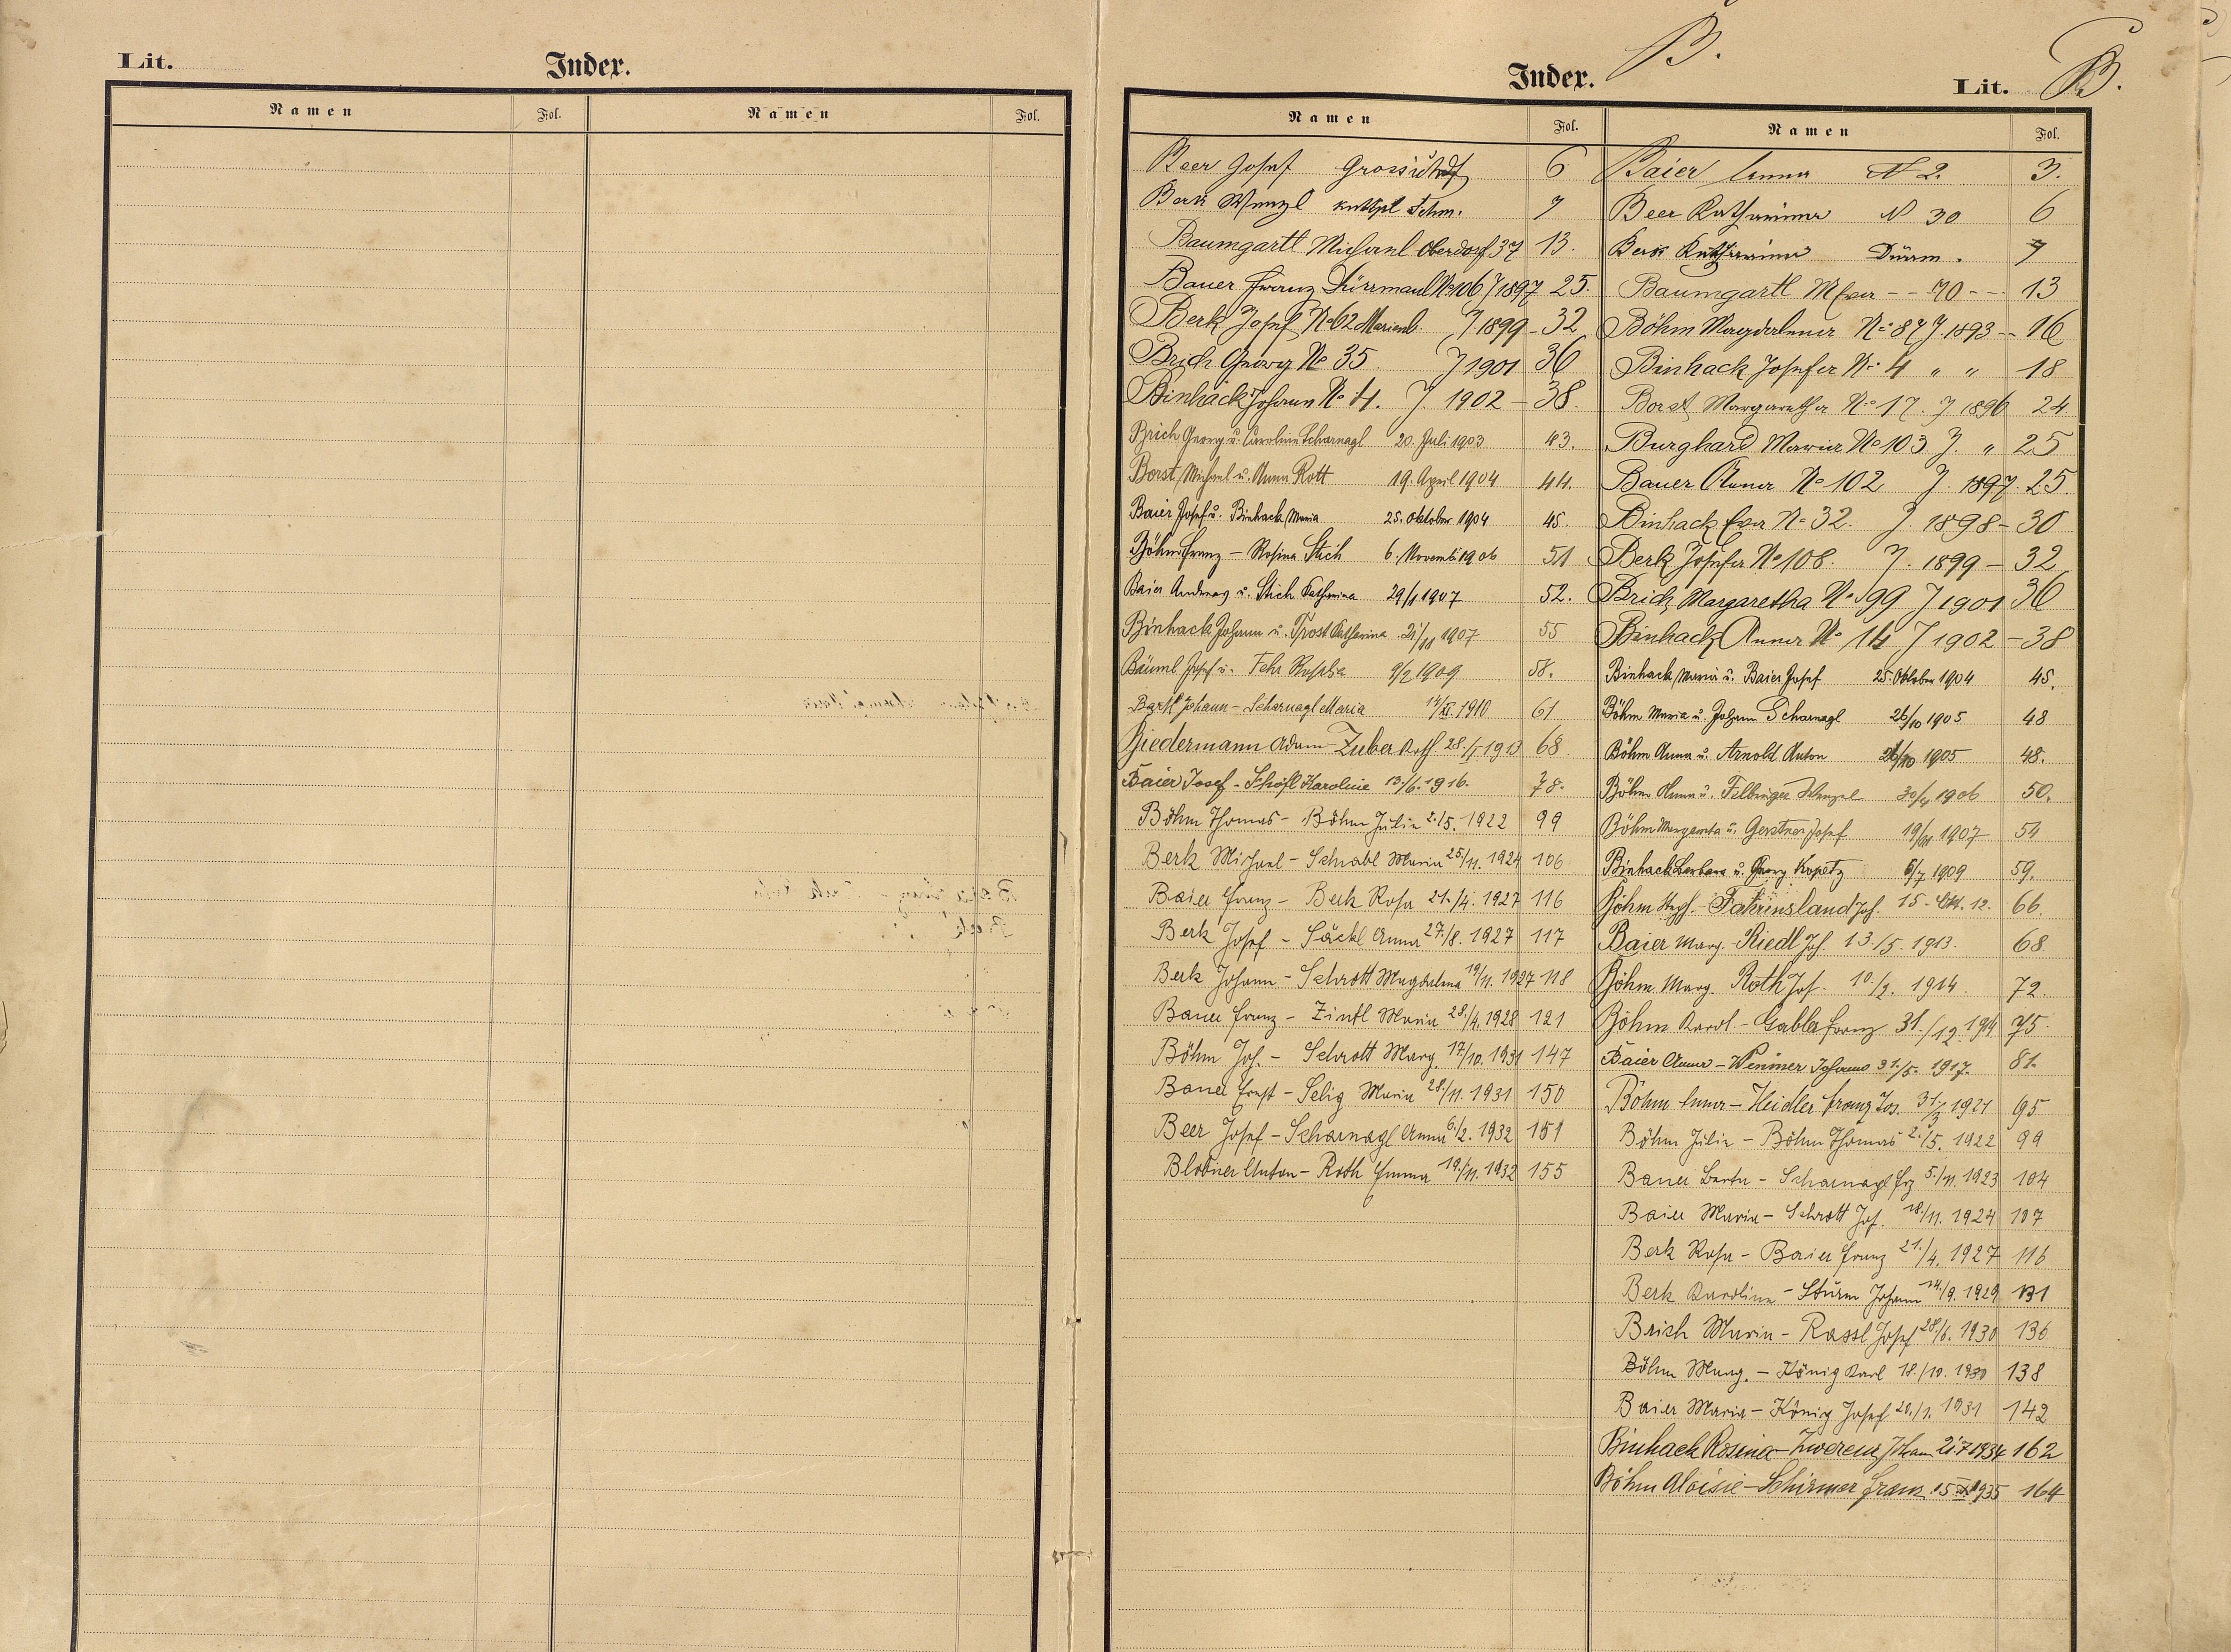 Lit.
Index.
Namen Fol. Namen Fol.
B.
Index.
Lit. B.
Namen Fol.
Beer Josef 6
Berk Wenzel 7
Baumgartl Michael Oberdorf 37 13.
Bauer Franz Dürrmaul No 106 J 1897 25.
Berk Josef No 62 Marienb. J 1899 - 32
Brich Georg No 35 J 1901 36
Binhack Johann No 4. J. 1902 - 38.
Brich Georg u. Caroline Scharnagl 20. Juli 1903 43.
Borst Michael u. Anna Rott 19. April 1904 44.
Baier Josef u. Binhack Maria 25. Oktober 1904 45.
Böhm Franz - Rosina Stich 6. Novemb 1906 51
Baier Andreas u. Stich Katharina 29/1 1907 52.
Binhack Johann u. Trost Katharina 1907 55
Bäuml Josef u. Fehr Rosalia 9/2 1909 58.
Bartl Johann - Scharnagl Maria 14/XI. 1910 61
Biedermann Adam - Zuber 28./I 1913 68
Baier Josef - Schöfl Karoline 13./6. 1916. 78.
Böhm Thomas - Böhm Julie 2./5. 1922 99
Berk Michael - Schnabl Maria 25/11. 1924 106
Baier Franz - Berk Rosa 21./4. 1927 116
Berk Josef - Säckl Anna 27/8. 1927 117
Berk Johann - Schrott Magdalena 19/11. 1927 118
Bauer Franz - Zintl Maria 28./4. 1928 121
Böhm Jos. - Schrott Marg. 17/10. 1931 147
Bauer Ernst - Selig Maria 28./11. 1931 150
Beer Josef - Scharnagl Anna 6./2. 1932 151
Blobner Anton - Roth Emma 19./11. 1932 155
Namen Fol.
Baier Anna N 2. 3.
Beer Katharina N 30 6
Berk Katharina Dürrm. 7
Baumgartl Eva - - 70 - - 13
Böhm Magdalena No 87 J. 1893 - - 16
Binhack Josefa No 4 " " 18
Borst Margaretha No 17. J 1896 24
Burghard Maria No 103 J. " 25
Bauer Anna No 102 J. 1897. 25.
Binhack Eva No 32. J. 1898 - 30
Berk Josefa No 108. J. 1899 - 32
Brich Margaretha No 99 J 1901 36
Binhack Anna No 14 J 1902 - 38
Binhack Maria u. Baier Josef 25. Oktober 1904 45.
Böhm Maria u. Johann Scharnagl 26/10 1905 48
Böhm Anna u. Arnold Anton 26/10 1905 48.
Böhm Anna u. Felbinger Wenzel 1906 50.
Böhm Margareta u. Gerstner Josef 1907 54
Binhack Barbara u. Georg Kopetz 6/7 1909 59.
Böhm - Fahrinsland Jos. 15. Okt. 12. 66.
Baier Marg. - Riedl Jos. 13./5. 1913. 68
Böhm. Marg. Roth Jos. 10./2. 1914. 72.
Böhm Karol. - Gabler Franz 31./12. 75.
Baier Anna - Wenisser Johann 31./5. 1917. 81.
Böhm Anna - Heidler Franz Jos. 31./3 1921 95
Böhm Julie - Böhm Thomas 2./5. 1922 99
Bauer Berta - Scharnagl Frz 5./11. 1923 104
Baier Maria - Schrott Jos. 18/11. 1924 107
Berk Rosa - Baier Franz 21./4. 1927 116
Berk Karoline - Sturm Johann 14./9. 1929 131
Brich Maria - Rassl Josef 28/6. 1930 136
Böhm Marg. - König Karl 18./10. 1930 138
Baier Maria - König Josef 20./1. 1931 142
Binhack Rosina - Zwerenz Johann 21.7 1934 162
Böhm Aloisie - Schirmer Franz 15 1935 164